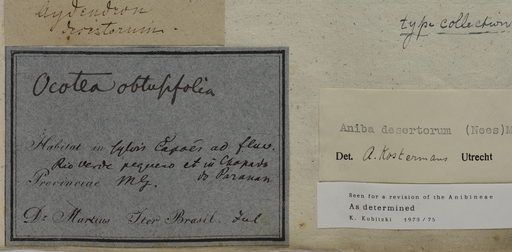 Aydendron
desertorum.
type collection
Ocotea obtusifolia
Habitat in sylvis Capoës ad fluv.
Rio verde pequeno et in Chapada
do Paranan
Provinciae MG.
Dr. Martius Iter Brasil. Jul
Aniba desertorum (Nees)M
Det. A. Kostermans Utrecht
Seen for a revision of the Anibineae
As determined
K. Kubitzki 1973/75